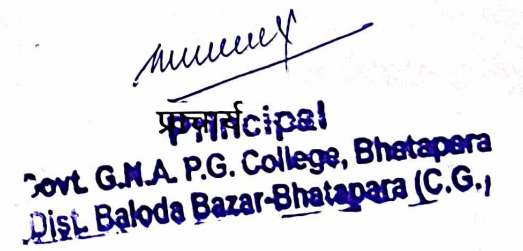 प्राचार्य
Principal
Govt. G.N.A. P.G. College, Bhatapara
Dist. Baloda Bazar-Bhatapara (C.G.)